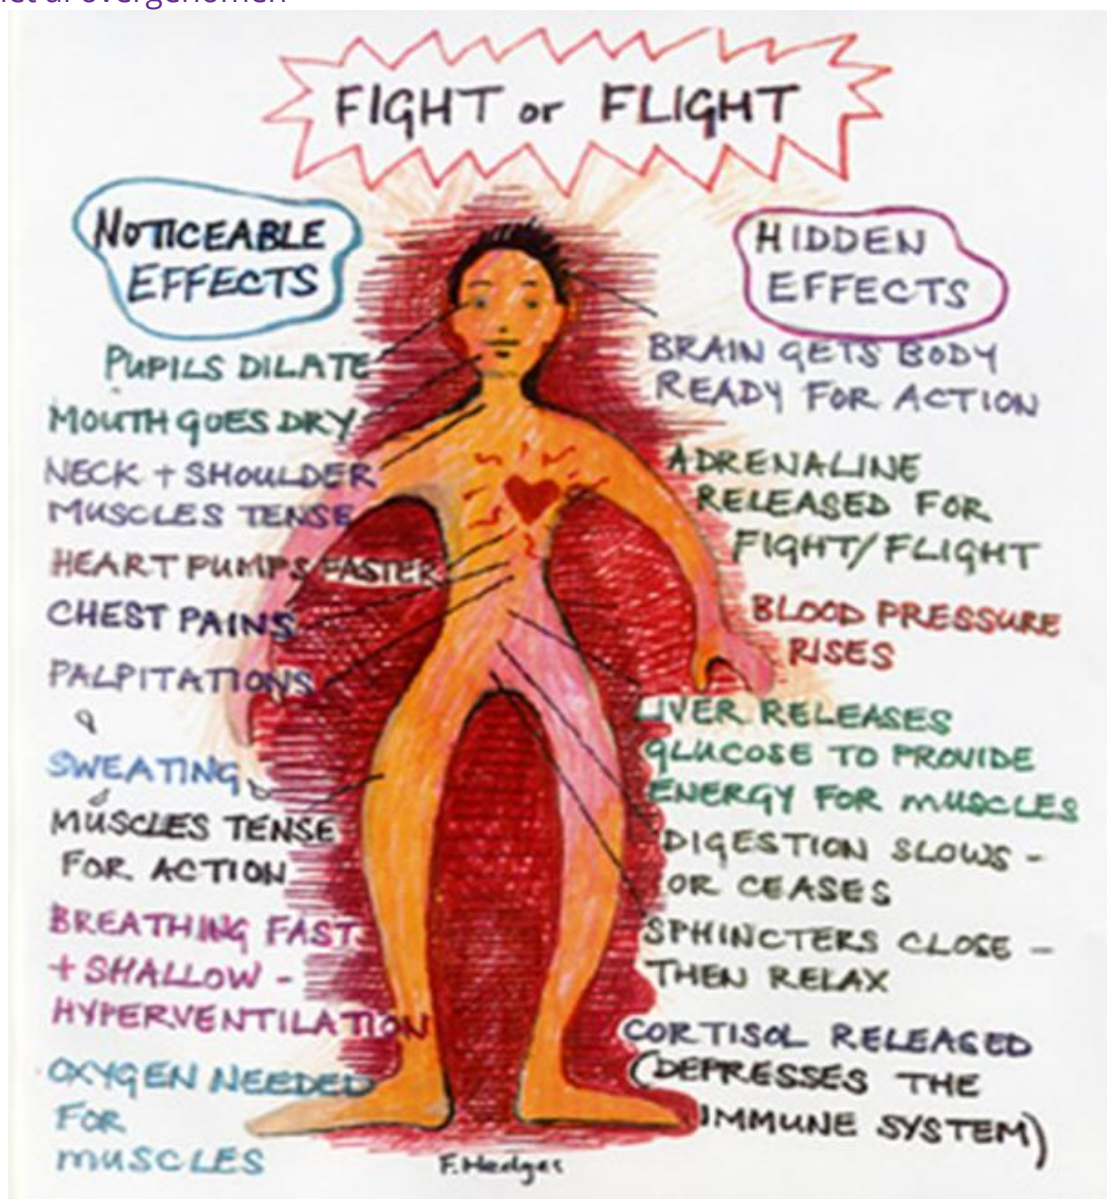 overgenomen
FIGHT or FLIGHT
NOTICEABLE
EFFECTS
PUPILS DILATE
MOUTH GOES DRY
NECK + SHOULDER
MUSCLES TENSE
HEART PUMPS FASTER
CHEST PAINS
PALPITATIONS
SWEATING
MUSCLES TENSE
FOR ACTION
BREATHING FAST
+ SHALLOW -
HYPERVENTILATION
OXYGEN NEEDED
FOR
MUSCLES
HIDDEN
EFFECTS
BRAIN GETS BODY
READY FOR ACTION
ADRENALINE
RELEASED FOR
FIGHT/FLIGHT
BLOOD PRESSURE
RISES
LIVER RELEASES
GLUCOSE TO PROVIDE
ENERGY FOR MUSCLES
DIGESTION SLOWS -
OR CEASES
SPHINCTERS CLOSE -
THEN RELAX
CORTISOL RELEASED
(DEPRESSES THE
IMMUNE SYSTEM)
F. Hedges